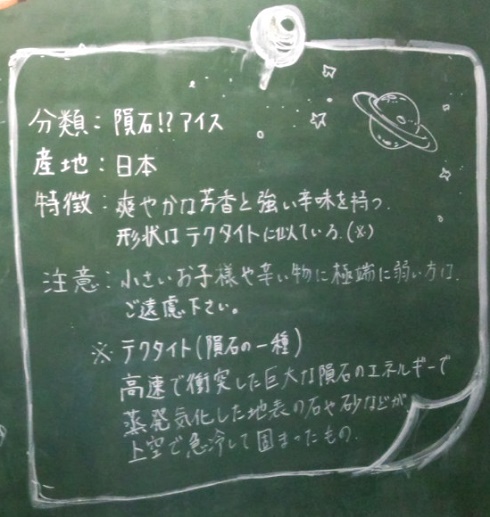 分類：隕石!?アイス
産地：日本
特徴：爽やかな芳香と強い辛味を持つ.
形状はテクタイトに似ている.(※)
注意：小さいお子様や辛い物に極端に弱い方は.
ご遠慮下さい。
※ テクタイト(隕石の一種)
高速で衝突した巨大な隕石のエネルギーで
蒸発気化した地表の石や砂などが
上空で急冷して固まったもの.